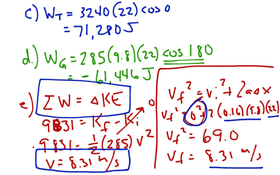 c) W_T = 3240(22) cos 0
= 71,280 J
d.) W_G = 285(9.8)(22) cos 180
= -61,446 J
e) ΣW = ΔKE
9831 = K_f - K_i 0
9831 = 1/2 (285) v²
V = 8.31 m/s
V_f² = V_i² + 2a Δx
V_f² = 0² + 2(0.16)(9.8)(22)
V_f² = 69.0
V_f = 8.31 m/s